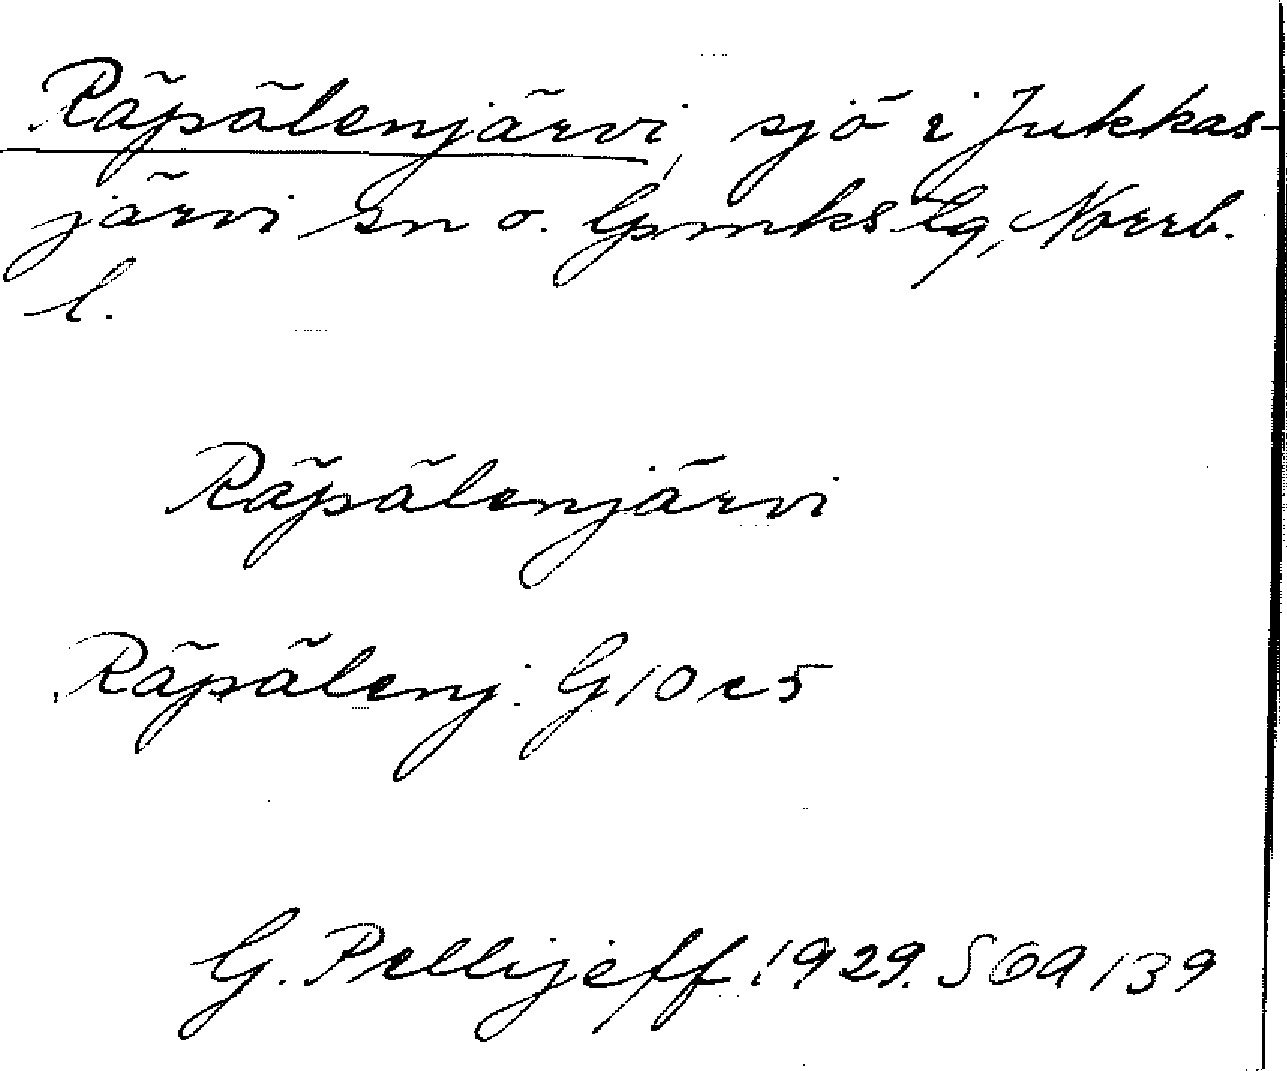 Räpälenjärvi, sjö i Jukkas-
järvi sn o. lpmkslg, Norrb.
l.
Räpälenjärvi
Räpälenj: G 10 c 5
G. Pellijeff 1929. SOA 139